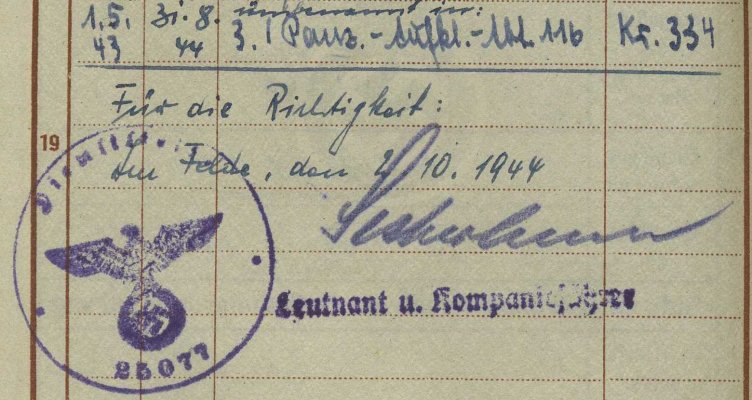 1.5. 31.8. Umbenennung in:
43 44 3./Panz.-Aufkl.-Abt. 116 Kr. 334
Für die Richtigkeit:
19
Im Felde, den 2/10. 1944
Leutnant u. Kompanieführer
Dienststelle
25077